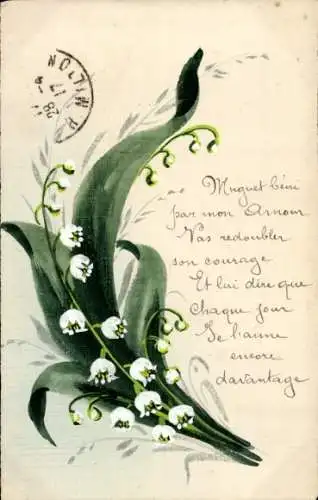 Muguet béni
par mon Amour
Vas redoubler
son courage
Et lui dire que
Chaque jour
Je l'aime
encore
davantage
28